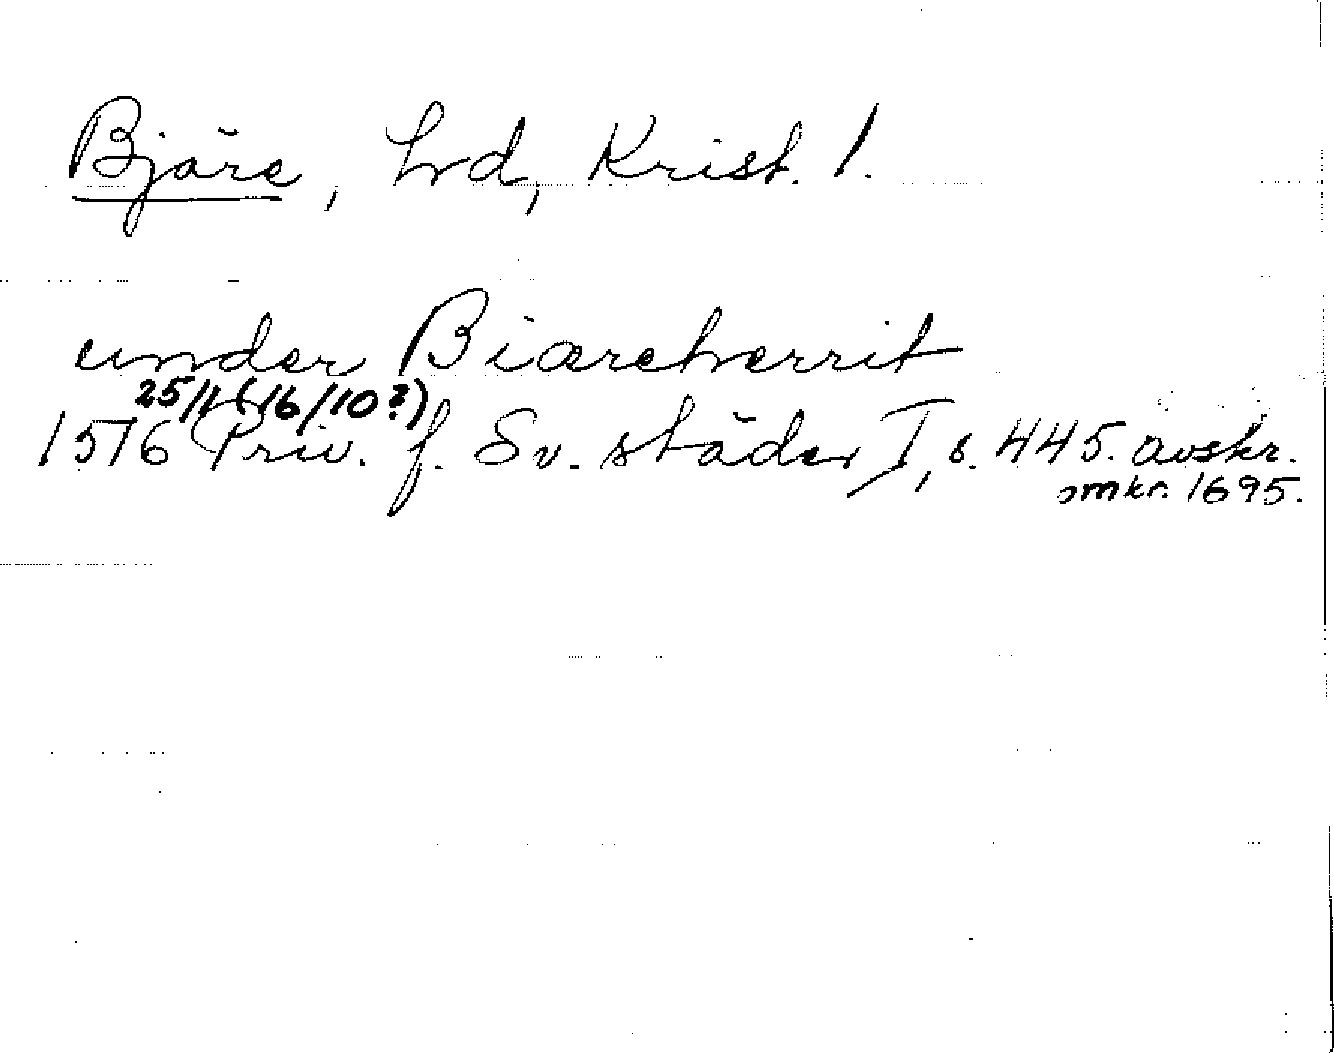 Bjäre, hrd, Krist. l.
under Biæreherrit
25/1 (16/10?)
1516 Priv. f. Sv. städer I, s. 445. avskr.
omkr. 1695.